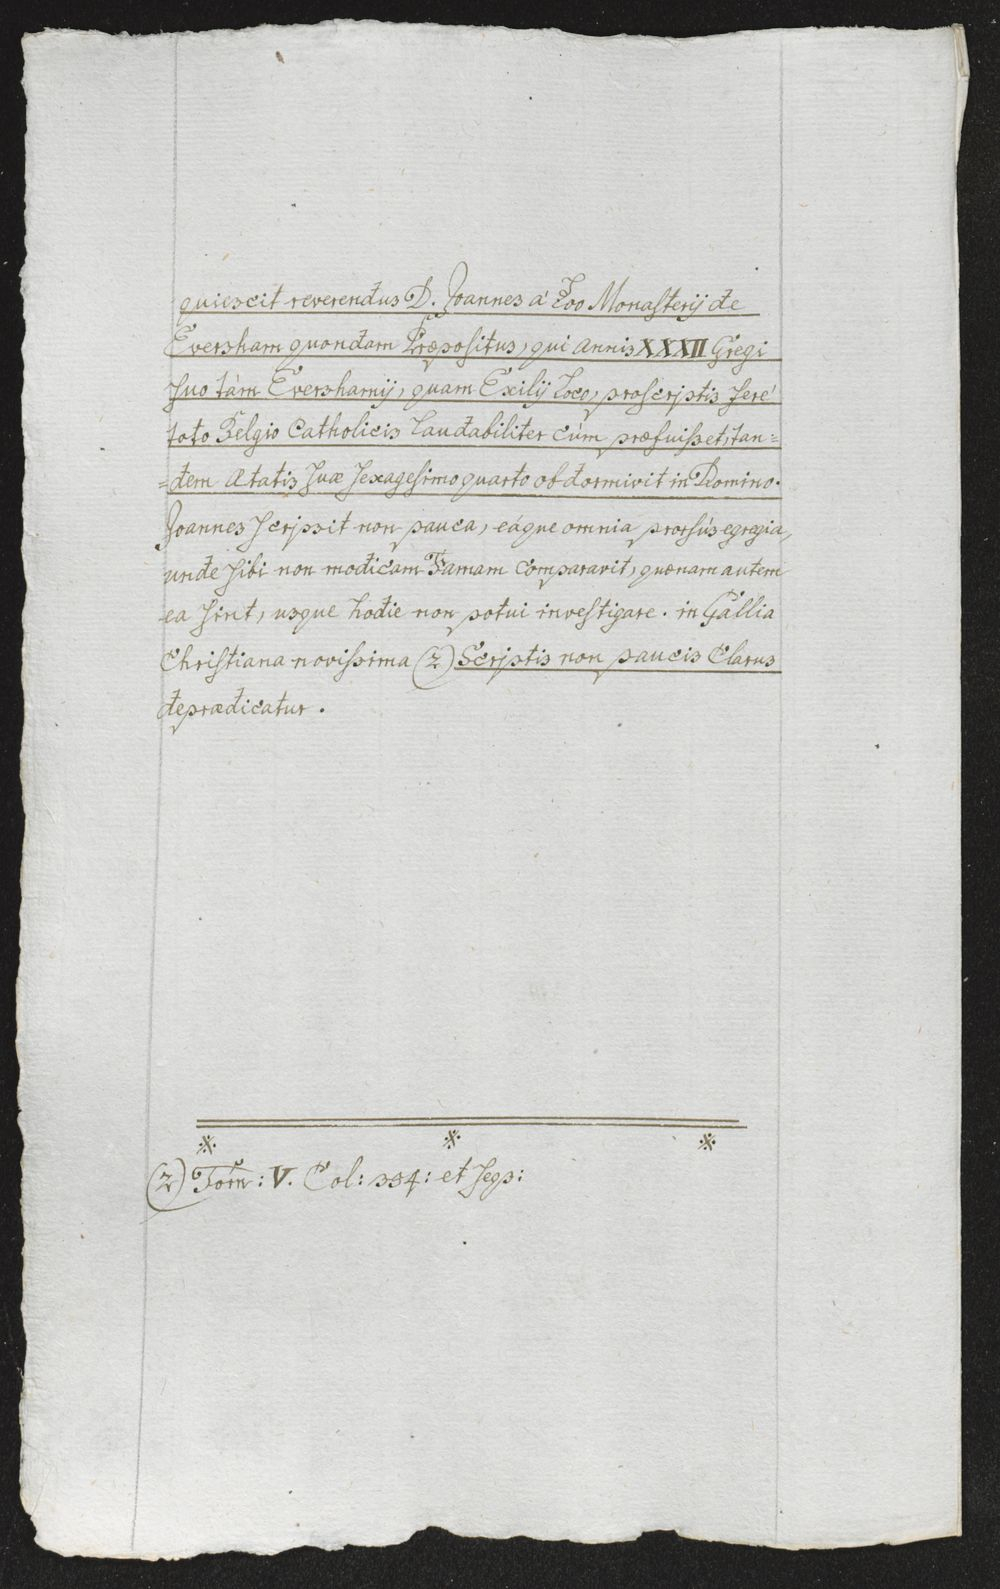 quiescit reverendus D. Joannes á Loo Monasterij de
Eversham quondam Præpositus, qui annis XXXII Gregi
suo tám Evershamij, quam Exilij loco, proscriptis feré
toto Belgio Catholicis laudabiliter cúm præfuisset, tan=
=dem ætatis suæ sexagesimo quarto obdormivit in Domino.
Joannes scripsit non pauca, eáque omnia prorsús egregia,
unde sibi non modicam Famam comparavit, quænam autem
ea sint, usque hodie non potui investigare. in Gallia
Christiana novissima (z) Scriptis non paucis Clarus
deprædicatur.
(z) Tom: V. Col: 334: et seqs: